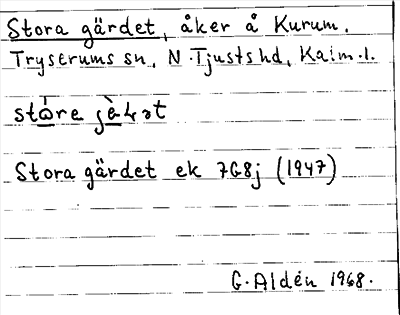 Stora gärdet, åker å Kurum.
Tryserums sn, N. Tjusts hd, Kalm. l.
Stora gärdet ek 7G8j (1947)
G. Aldén 1968.